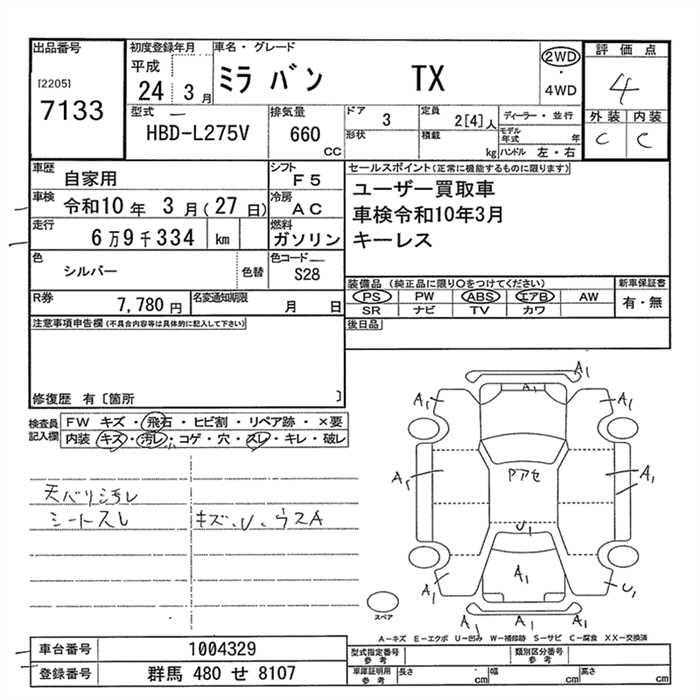 出品番号
[2205]
7133
初度登録年月
平成
24 3月
車名・グレード
ミラ バン TX
2WD
・
4WD
評価点
4
外装 内装
C C
型式
HBD-L275V
排気量
660
CC
ドア
3
形状
定員
2[4]人
積載
kg
ディーラー・並行
モデル年式 年
ハンドル 左・右
車歴
自家用
シフト
F5
車検
令和10年 3月(27日)
冷房
AC
走行
6万9千334 km
燃料
ガソリン
色
シルバー
色替
色コード
S28
R券
7,780円
名変通知期限
月 日
セールスポイント(正常に機能するものに限ります)
ユーザー買取車
車検令和10年3月
キーレス
装備品(純正品に限り○をつけてください)
PS PW ABS エアB AW
SR ナビ TV カワ
新車保証書
有・無
後日品
注意事項申告欄(不具合内容等は具体的に記入して下さい)
修復歴 有〔箇所 〕
検査員
記入欄
FW キズ・飛石・ヒビ割・リペア跡・×要
内装 キズ・汚レ・コゲ・穴・スレ・キレ・破レ
天バリ汚レ
シートスレ
キズ、U、ウスA
A1
A1
A1
A1
A1
Pアセ
A1
U1
A1
A1
U1
A1
A1
スペア
A−キズ E−エクボ U−凹み W−補修跡 S−サビ C−腐食 XX−交換済
車台番号
1004329
登録番号
群馬 480 せ 8107
型式指定番号
参考
類別区分番号
参考
車庫証明用
参考
長さ cm
幅 cm
高さ cm